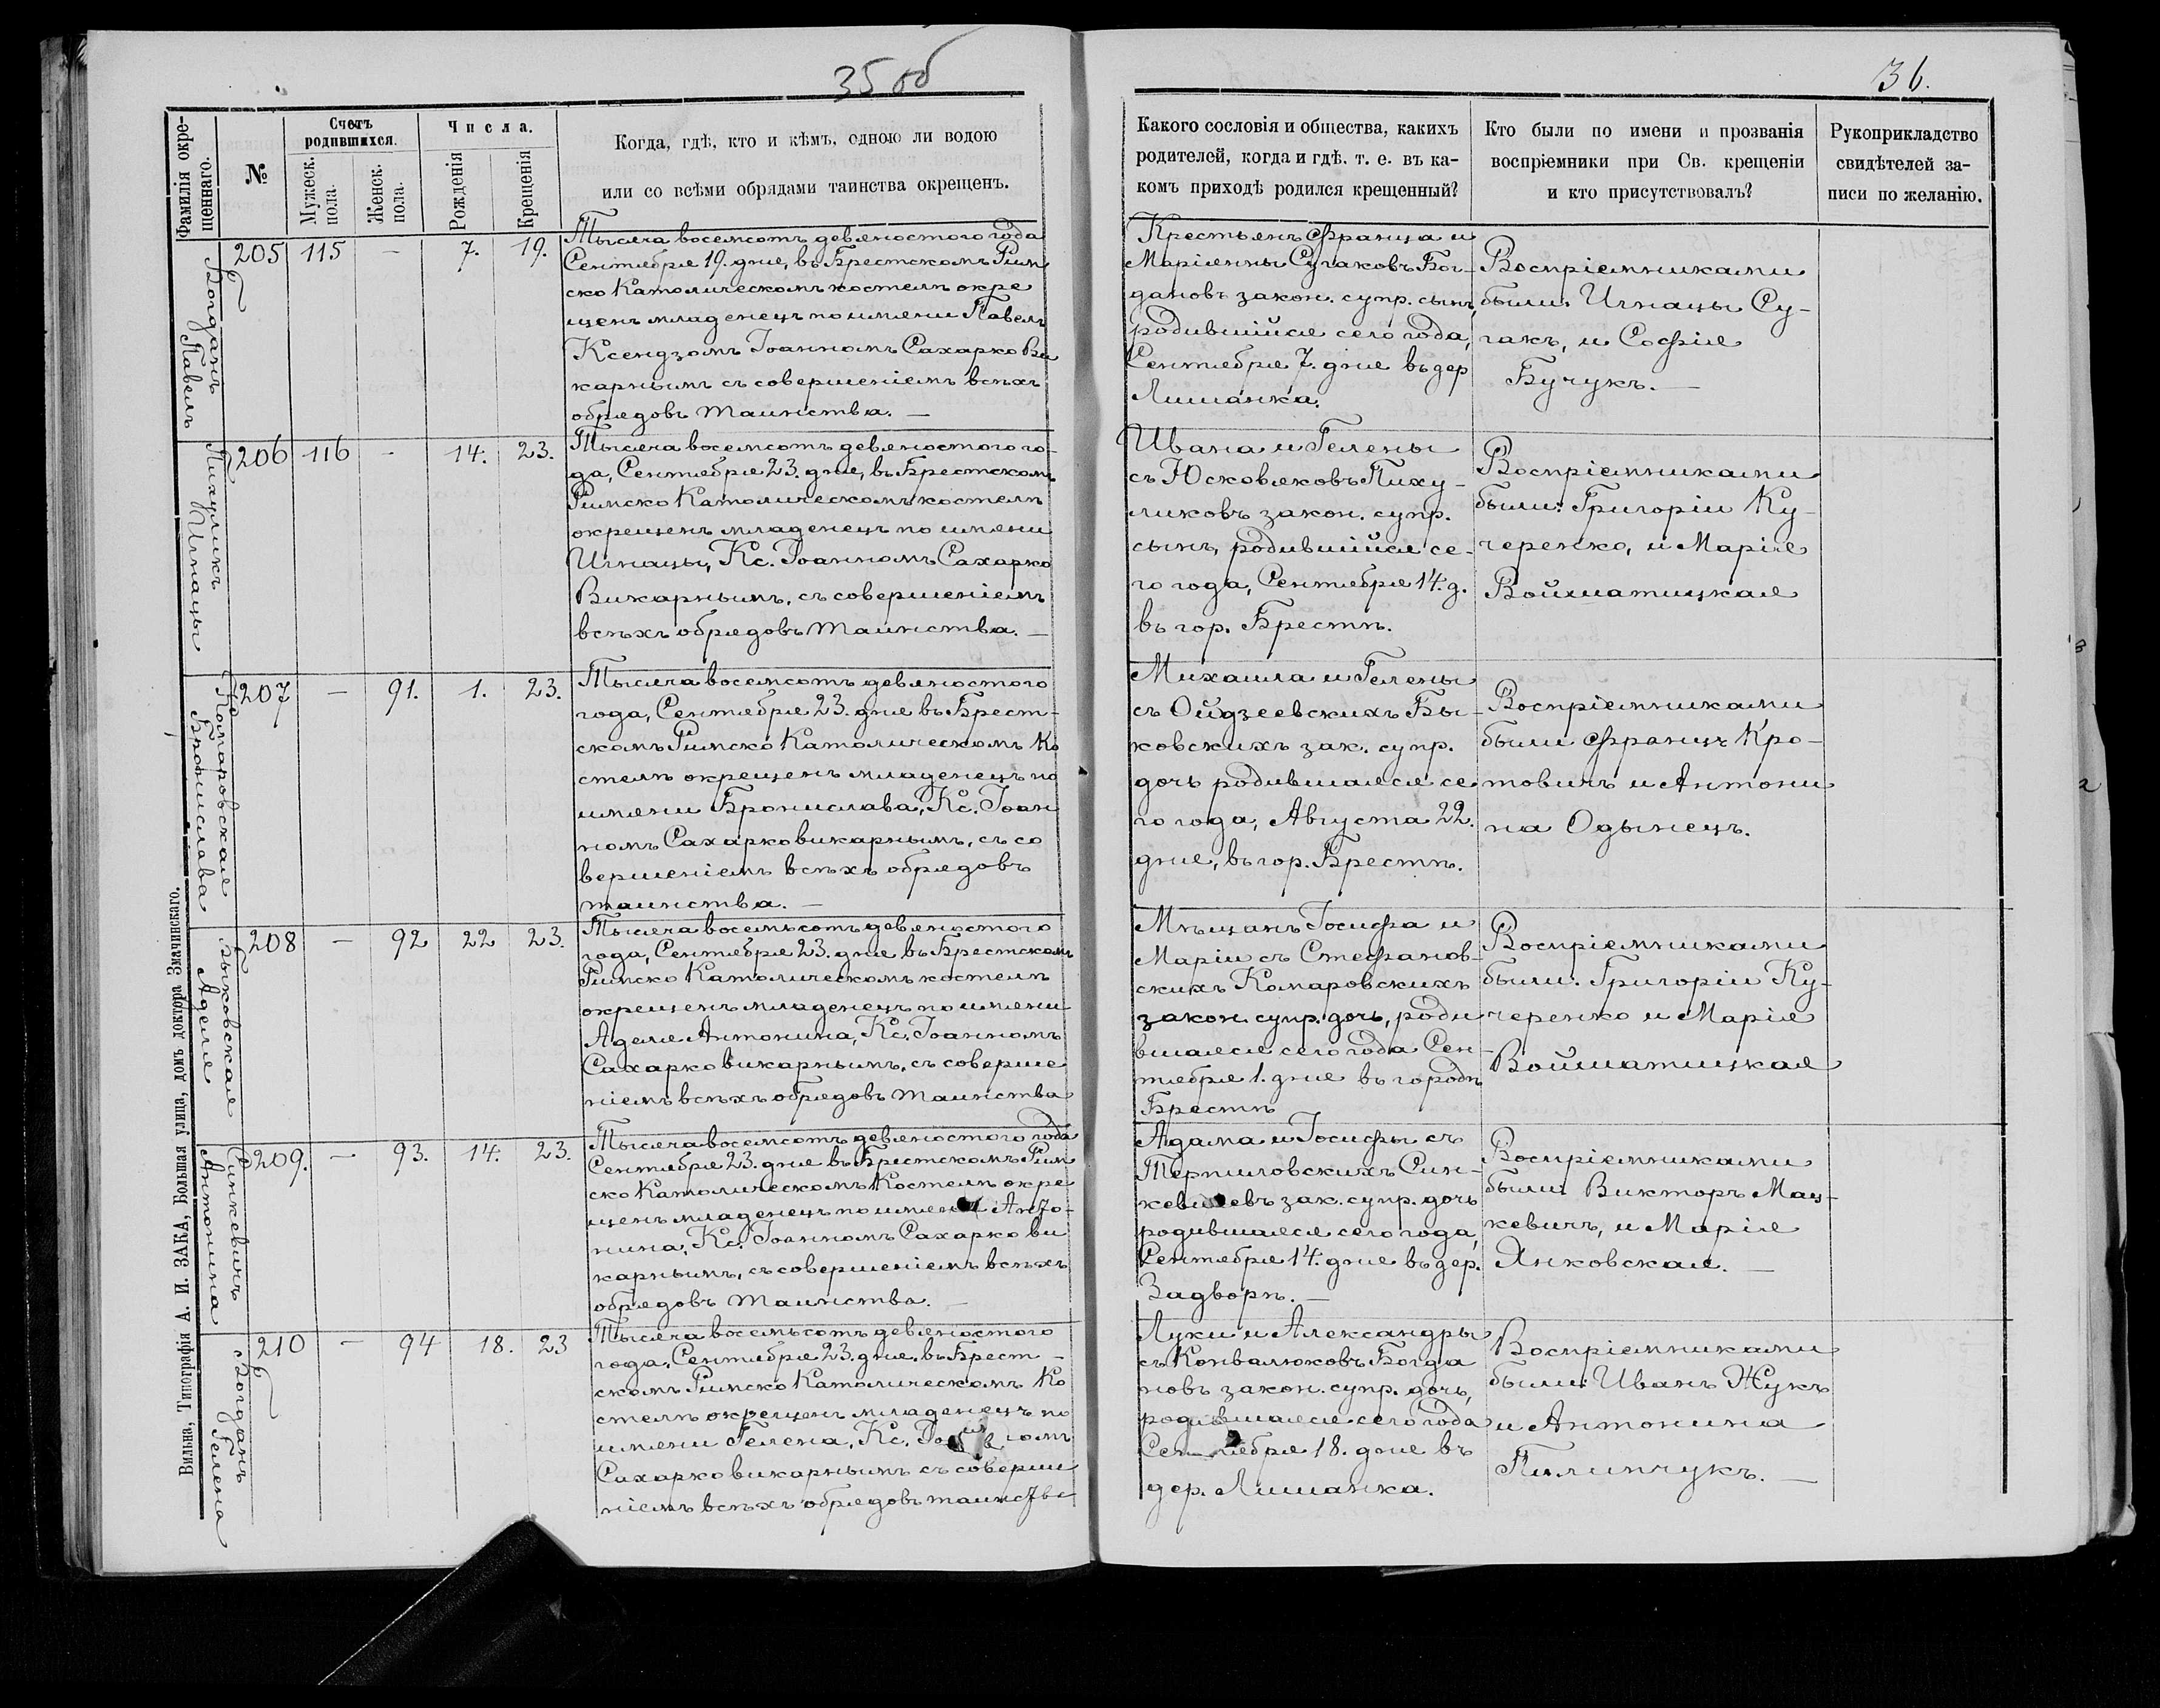 35 об
36.
Фамилія окре-
щеннаго.
№
Счетъ
родившихся.
Мужеск.
пола.
Женск.
пола.
Числа.
Рожденія
Крещенія
Когда, гдѣ, кто и кѣмъ, одною ли водою
или со всѣми обрядами таинства окрещенъ.
Какого сословія и общества, какихъ
родителей, когда и гдѣ, т. е. въ ка-
комъ приходѣ родился крещенный?
Кто были по имени и прозванія
воспріемники при Св. крещеніи
и кто присутствовалъ?
Рукоприкладство
свидѣтелей за-
писи по желанію.
Богданъ
Павелъ
205 115 - 7. 19.
Тысяча восемсотъ девяностого года
Сентября 19. дня, въ Брестскомъ Рим
ско Католическомъ костелѣ окре
щенъ младенецъ по имени Павелъ
Ксендзомъ Іоанномъ Сахарко Ви
карнымъ съ совершеніемъ всѣхъ
обрядовъ таинства. —
Крестьянъ Франца и
Маріянны Сугаковъ Бог-
дановъ закон. супр. сынъ,
родившійся сего года,
Сентября 7. дня въ дер
Лишанка.
Воспріемниками
были: Игнацы Су-
гакъ, и Софія
Бучукъ. —
Пихуликъ
Игнацы
206 116 - 14. 23.
Тысяча восемсотъ девяностого го-
да, Сентября 23. дня, въ Брестскомъ
Римско Католическомъ костелѣ
окрещенъ младенецъ по имени
Игнацы, Кс. Іоанномъ Сахарко
Викарнымъ, съ совершеніемъ
всѣхъ обрядовъ таинства. —
Ивана и Гелены
съ Юсковяковъ Пиху-
ликовъ закон. супр.
сынъ, родившійся се-
го года, Сентября 14. д.
въ гор. Брестѣ.
Воспріемниками
были: Григоріи Ку-
черенко, и Марія
Войшатицкая
Комаровская
Бронислава
207 — 91. 1. 23.
Тысяча восемсотъ девяностого
года, Сентября 23. дня въ Брест-
скомъ Римско Католическомъ Ко
стелѣ окрещенъ младенецъ по
имени Бронислава, Кс. Іоан
номъ Сахарко викарнымъ, съ со
вершеніемъ всѣхъ обрядовъ
таинства. —
Михаила и Гелены
съ Ойдзеевскихъ Бы-
ковскихъ зак. супр.
дочь родившаяся се
го года, Августа 22.
дня, въ гор. Брестѣ.
Воспріемниками
были Францъ Кро-
товичъ и Антони
на Одынецъ.
Быковская
Аделя
208 — 92 22 23.
Тысяча восемьсотъ девяностого
года, Сентября 23. дня въ Брестскомъ
Римско Католическомъ костелѣ
окрещенъ младенецъ по имени
Аделя Антонина, Кс. Іоанномъ
Сахарко викарнымъ, съ соверше
ніемъ всѣхъ обрядовъ таинства
Мѣщанъ Іосифа и
Маріи съ Стефанов-
скихъ Комаровскихъ
закон. супр. дочь, роди
вшаяся сего года Сен-
тября 1. дня въ городѣ
Брестѣ
Воспріемниками
были: Григоріи Ку-
черенко и Марія
Войшатицкая
Синкевичъ
Антонина
209. — 93. 14. 23.
Тысяча восемсотъ девяностого года
Сентября 23. дня въ Брестскомъ Рим
ско Католическомъ Костелѣ окре
щенъ младенецъ по имени Анто-
нина, Кс. Іоанномъ Сахарко ви
карнымъ, съ совершеніемъ всѣхъ
обрядовъ таинства. —
Адама и Іосифы съ
Терпиловскихъ Син-
кевичевъ зак. супр. дочь
родившаяся сего года,
Сентября 14. дня въ дер.
Задворѣ. —
Воспріемниками
были Викторъ Мац-
кевичъ, и Марія
Янковская. —
Богданъ
Гелена
210 — 94 18. 23
Тысяча восемьсотъ девяностого
года, Сентября 23. дня, въ Брест-
скомъ Римско Католическомъ Ко
стелѣ окрещенъ младенецъ по
имени Гелена, Кс. Іоанномъ
Сахарко викарнымъ съ соверше
ніемъ всѣхъ обрядовъ таинства
Луки и Александры
съ Конвалюковъ Богда
новъ закон. супр. дочь,
родившаяся сего года
Сентября 18. дня въ
дер. Лишанка.
Воспріемниками
были: Иванъ Жукъ
и Антонина
Пилипчукъ. —
Вильна, Типографія А. И. ЗАКА, Большая улица, домъ доктора Змачинскаго.